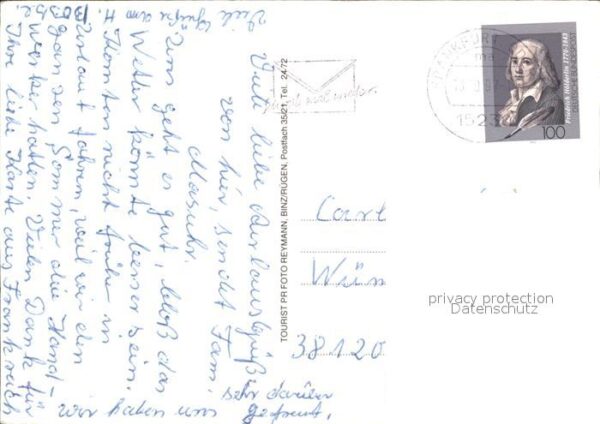 Viele liebe Urlaubsgrüße
von hier, sendet Fam.
Uns geht es gut, bloß das
Wetter könnte besser sein.
Konnten nicht früher in
Urlaub fahren, weil wir den
ganzen Sommer die Hand-
werker hatten. Vielen Dank für
Ihre liebe Karte aus Frankreich
wir haben uns sehr darüber
gefreut,
Viele Grüße
TOURIST PR FOTO REYMANN, BINZ/RÜGEN, Postfach 35/21, Tel. 24 72
FRANKFURT
152
Friedrich Hölderlin 1770-1843
100
Carl
38120
privacy protection
Datenschutz